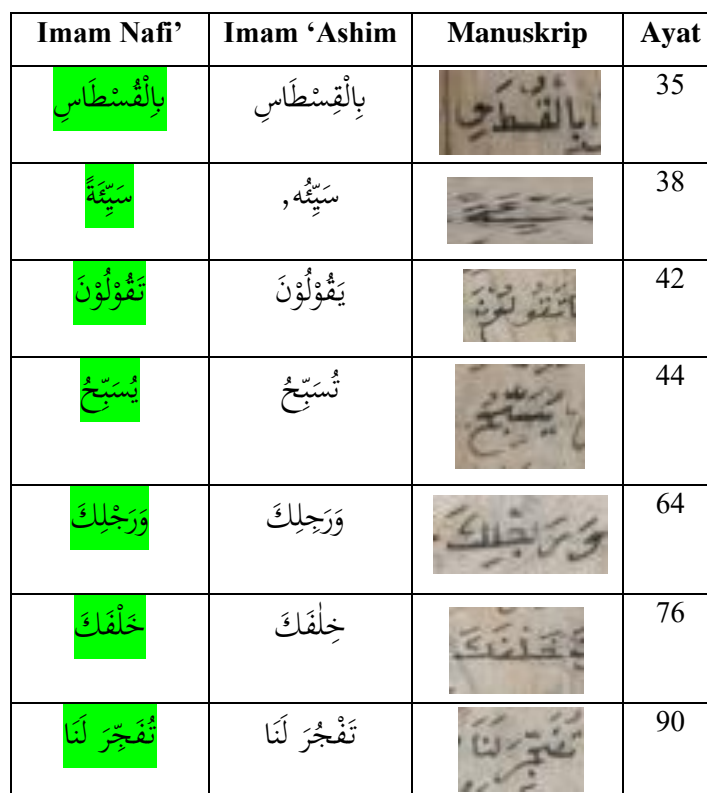 Imam Nafi’ Imam ‘Ashim Manuskrip Ayat
بِالْقُسْطَاسِ بِالْقِسْطَاسِ بِالْقُسْطَسِ 35
سَيِّئَةً سَيِّئُه, 38
تَقُوْلُوْنَ يَقُوْلُوْنَ تَقُولُونَ 42
يُسَبِّحُ تُسَبِّحُ يُسَبِّحُ 44
وَرَجْلِكَ وَرَجِلِكَ وَرَجْلِكَ 64
خَلْفَكَ خِلٰفَكَ خَلْفَكَ 76
تُفَجِّرَ لَنَا تَفْجُرَ لَنَا تُفَجِّرَ لَنَا 90